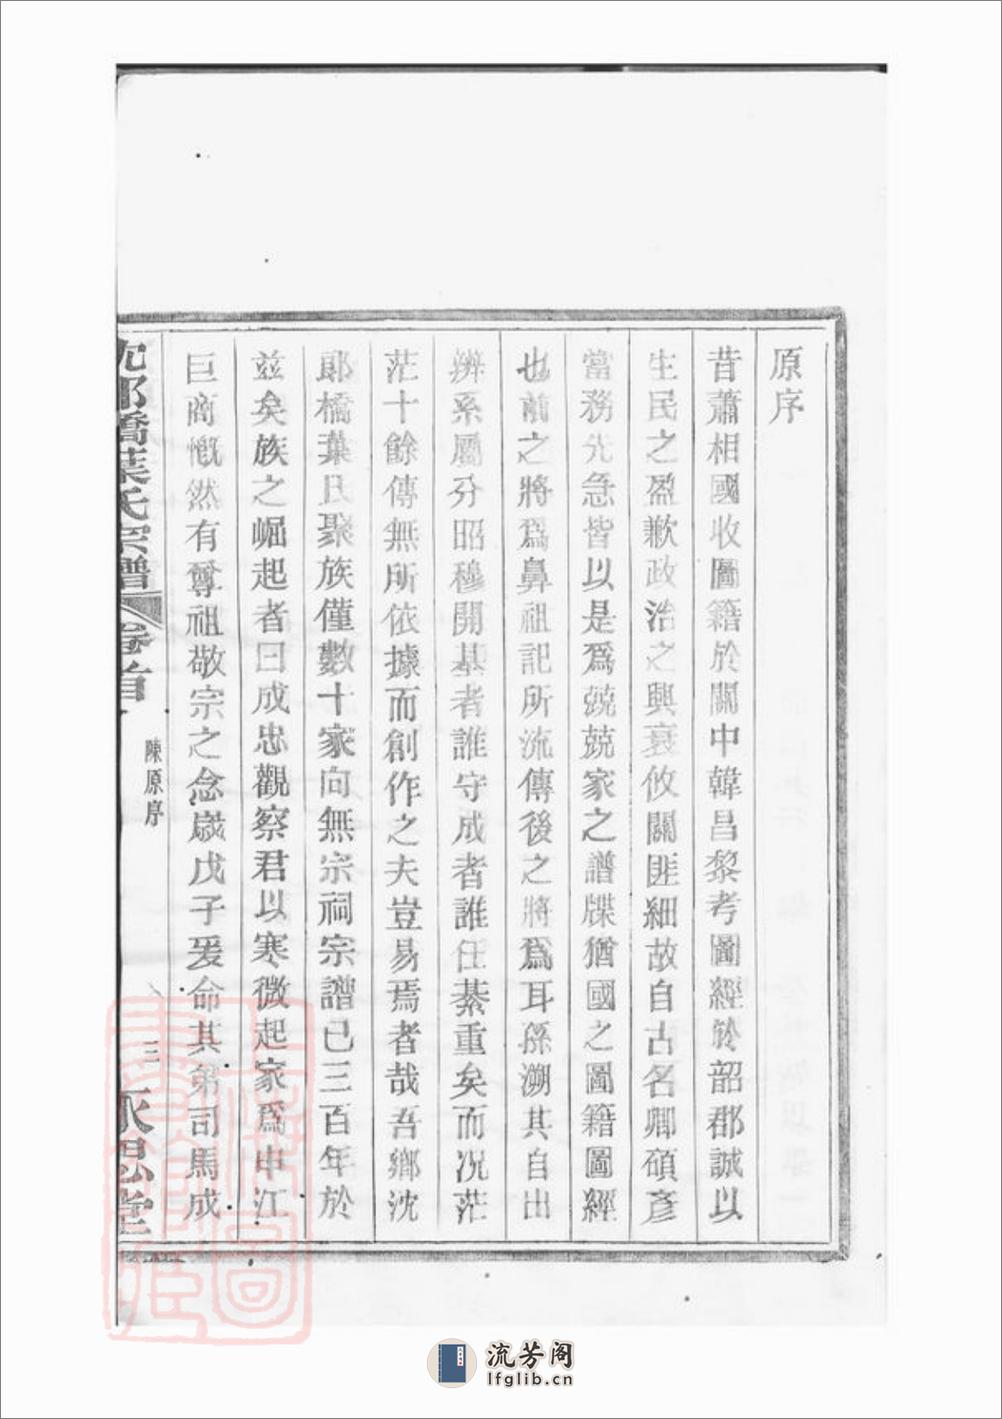 原序
昔蕭相國收圖籍於關中韓昌黎考圖經於韶郡誠以
生民之盈歉政治之興衰攸關匪細故自古名卿碩彥
當務先急皆以是爲兢兢家之譜牒猶國之圖籍圖經
也前之將爲鼻祖記所流傳後之將爲耳孫溯其自出
辨系屬分昭穆開基者誰守成者誰任綦重矣而況茫
茫十餘傳無所依據而創作之夫豈易焉者哉吾鄉沈
郎橋葉氏聚族僅數十家向無宗祠宗譜已三百年於
茲矣族之崛起者曰成忠觀察君以寒微起家爲申江
巨商慨然有尊祖敬宗之念歲戊子爰命其弟司馬成
沈郎橋葉氏宗譜
卷首
陳原序
三
流芳阁
lfglib.cn